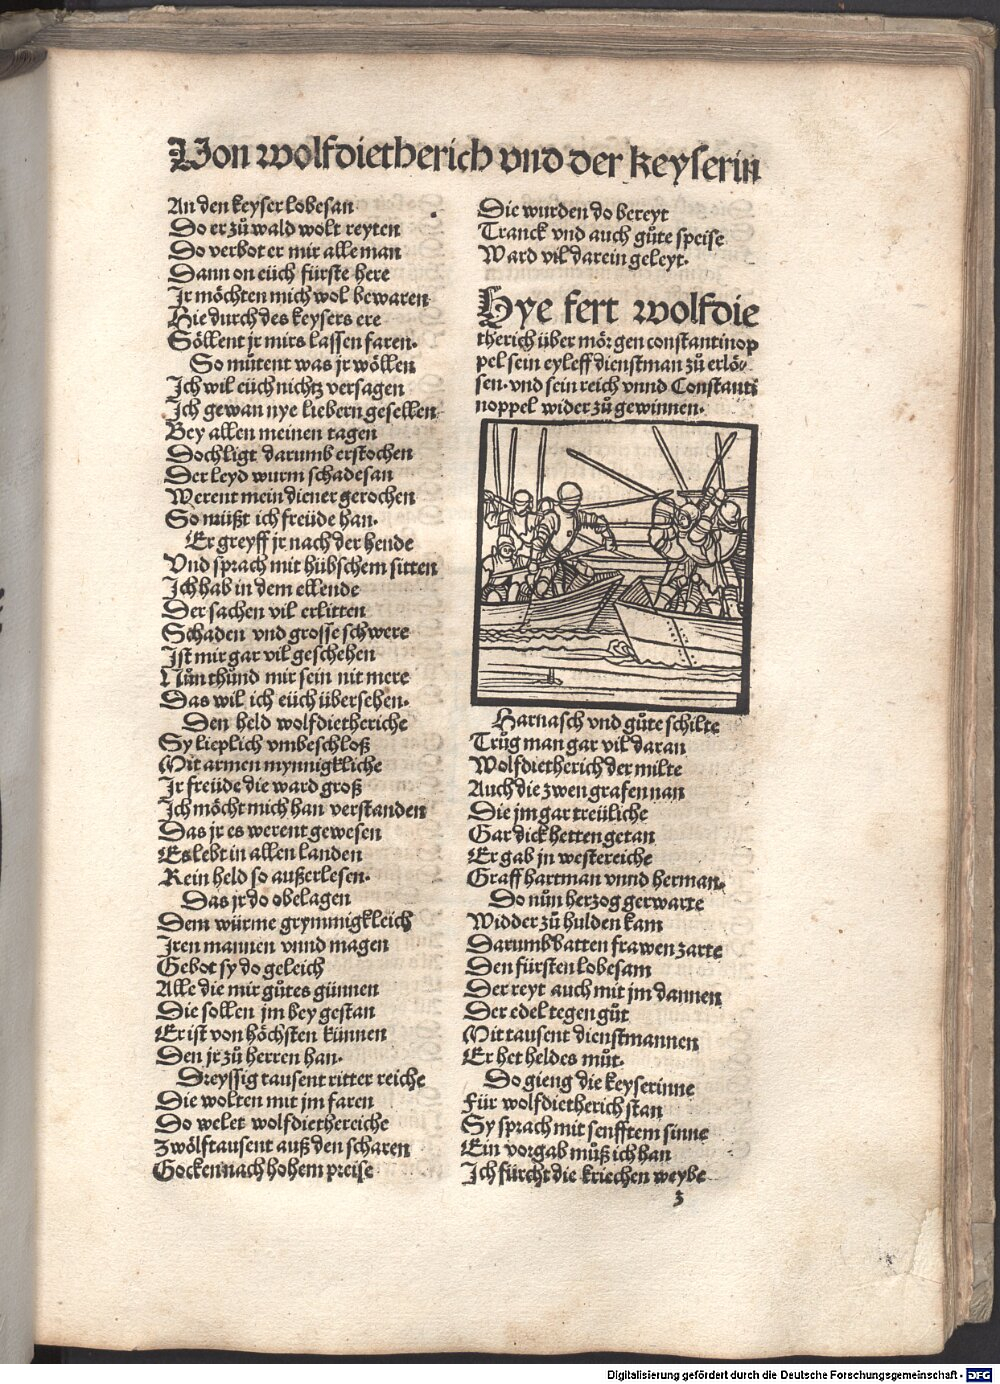 Von wolfdietherich vnd der keyserin
An den keyser lobesan
Do er zů wald wolt reyten
Do verbot er mir alle man
Dann on eüch fürste here
Jr möchten mich wol bewaren
Hie durch des keysers ere
Söllent jr mirs lassen faren.
So můtent was jr wöllen
Jch wil eüch nichtz versagen
Jch gewan nye liebern gesellen
Bey allen meinen tagen
Doch ligt darumb erstochen
Der leyd wurm schadesan
Werent mein diener gerochen
So müßt ich freüde han.
Er greyff jr nach der hende
Vnd sprach mit hübschem sitten
Jch hab in dem ellende
Der sachen vil erlitten
Schaden vnd grosse schwere
Jst mir gar vil geschehen
Nůn thůnd mir sein nit mere
Das wil ich eüch übersehen.
Den held wolfdietheriche
Sy lieplich vmbeschloß
Mit armen mynnigkliche
Jr freüde die ward groß
Jch möcht mich han verstanden
Das jr es werent gewesen
Es lebt in allen landen
Kein held so außerlesen.
Das jr do obelagen
Dem würme grymmigkleich
Jren mannen vnnd magen
Gebot sy do geleich
Alle die mir gůtes günnen
Die sollen jm bey gestan
Er ist von höchsten künnen
Den jr zů herren han.
Dreyssig tausent ritter reiche
Die wolten mit jm faren
Do welet wolfdiethereiche
Zwölftausent auß den scharen
Gocken nach hohem preise
Die wurden do bereyt
Tranck vnd auch gůte speise
Ward vil darein geleyt.
Hye fert wolfdie
therich über mör gen constantinop
pel sein eyleff dienstman zů erlö-
sen. vnd sein reich vnnd Constanti
noppel wider zů gewinnen.
Harnasch vnd gůte schilte
Trůg man gar vil daran
Wolfdietherich der milte
Auch die zwen grafen nan
Die jm gar treüliche
Gar dick hetten getan
Er gab jn westereiche
Graff hartman vnnd herman.
Do nůn herzog gerwarte
Widder zů hulden kam
Darumb batten frawen zarte
Den fürsten lobesam
Der reyt auch mit jm dannen
Der edel tegen gůt
Mit tausent dienstmannen
Er het heldes můt.
Do gieng die keyserinne
Für wolfdietherich stan
Sy sprach mit senfftem sinne
Ein vorgab můß ich han
Jch fürcht die kriechen weybe
z
Digitalisierung gefördert durch die Deutsche Forschungsgemeinschaft - DFG